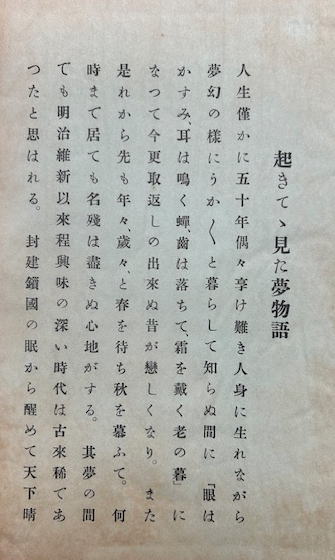 起きてゝ見た夢物語
人生僅かに五十年偶々享け難き人身に生れながら
夢幻の樣にうか〳〵と暮らして知らぬ間に『眼は
かすみ、耳は鳴く蟬、齒は落ちて、霜を戴く老の暮』に
なつて今更取返しの出來ぬ昔が戀しくなり。また
是れから先も年々、歲々、と春を待ち秋を慕ふて。何
時まで居ても名殘は盡きぬ心地がする。其夢の間
でも明治維新以來程興味の深い時代は古來稀であ
つたと思はれる。封建鎖國の眠から醒めて天下晴